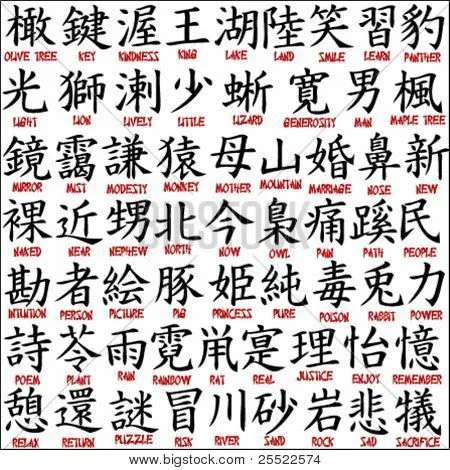 橄 鍵 渥 王 湖 陸 笑 習 豹
OLIVE TREE KEY KINDNESS KING LAKE LAND SMILE LEARN PANTHER
光 獅 溂 少 蜥 寛 男 楓
LIGHT LION LIVELY LITTLE LIZARD GENEROSITY MAN MAPLE TREE
鏡 靄 謙 猿 母 山 婚 鼻 新
MIRROR MIST MODESTY MONKEY MOTHER MOUNTAIN MARRIAGE NOSE NEW
裸 近 甥 北 今 梟 痛 蹊 民
NAKED NEAR NEPHEW NORTH NOW OWL PAIN PATH PEOPLE
勘 者 絵 豚 姫 純 毒 兎 力
INTUITION PERSON PICTURE PIG PRINCESS PURE POISON RABBIT POWER
詩 芩 雨 霓 鼡 寔 理 怡 憶
POEM PLANT RAIN RAINBOW RAT REAL JUSTICE ENJOY REMEMBER
憩 還 謎 冒 川 砂 岩 悲 犠
RELAX RETURN PUZZLE RISK RIVER SAND ROCK SAD SACRIFICE
www.bigstock.com · 25522574